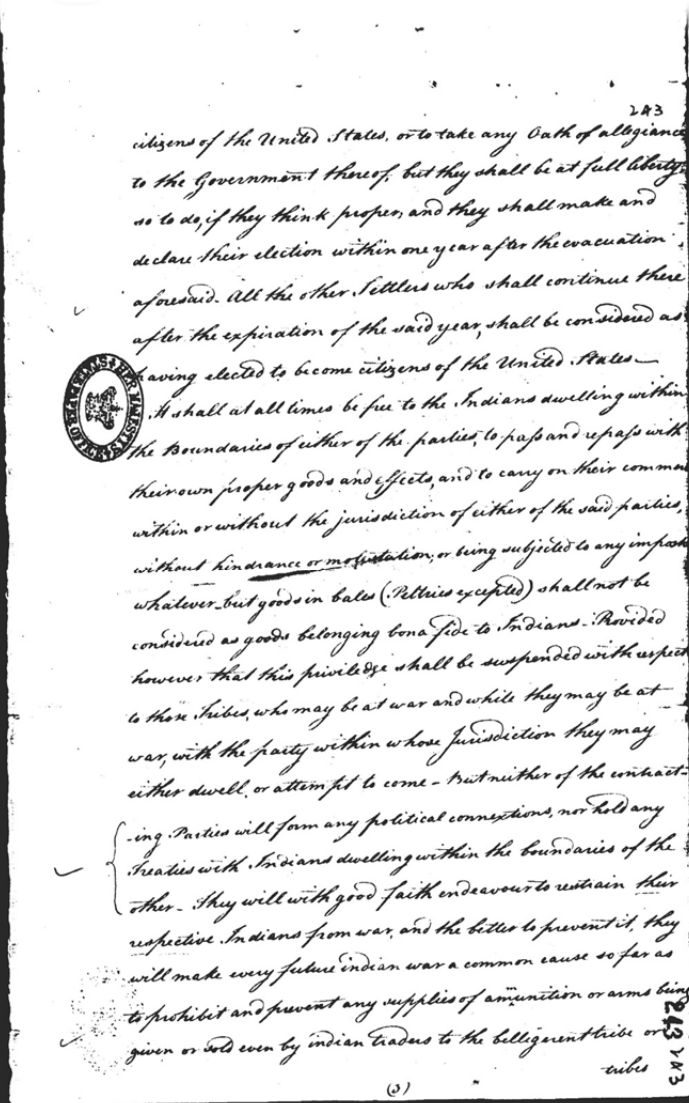 243
citizens of the United States, or to take any Oath of allegiance
to the Government thereof, but they shall be at full liberty
so to do, if they think proper, and they shall make and
declare their election within one year after the evacuation
aforesaid. All the other Settlers who shall continue there
after the expiration of the said year, shall be considered as
having elected to become citizens of the United States—
It shall at all times be free to the Indians dwelling within
the Boundaries of either of the parties, to pass and repass with
their own proper goods and effects, and to carry on their comme
within or without the jurisdiction of either of the said parties,
without hindrance or molestation, or being subjected to any impost
whatever but goods in bales (Peltries excepted) shall not be
considered as goods belonging bona fide to Indians - Provided
however that this priviledge shall be suspended with respect
to those Tribes, who may be at war and while they may be at
war, with the party within whose Jurisdiction they may
either dwell, or attempt to come - But neither of the contract-
-ing Parties will form any political connextions, nor hold any
Treaties with Indians dwelling within the boundaries of the
other - They will with good faith endeavour to restrain their
respective Indians from war, and the better to prevent it, they
will make every future indian war a common cause so far as
to prohibit and prevent any supplies of amunition or arms being
given or sold even by indian traders to the belligerent tribe or
tribes
(3)
243
243
HER MAJESTY'S STATE PAPER OFFICE